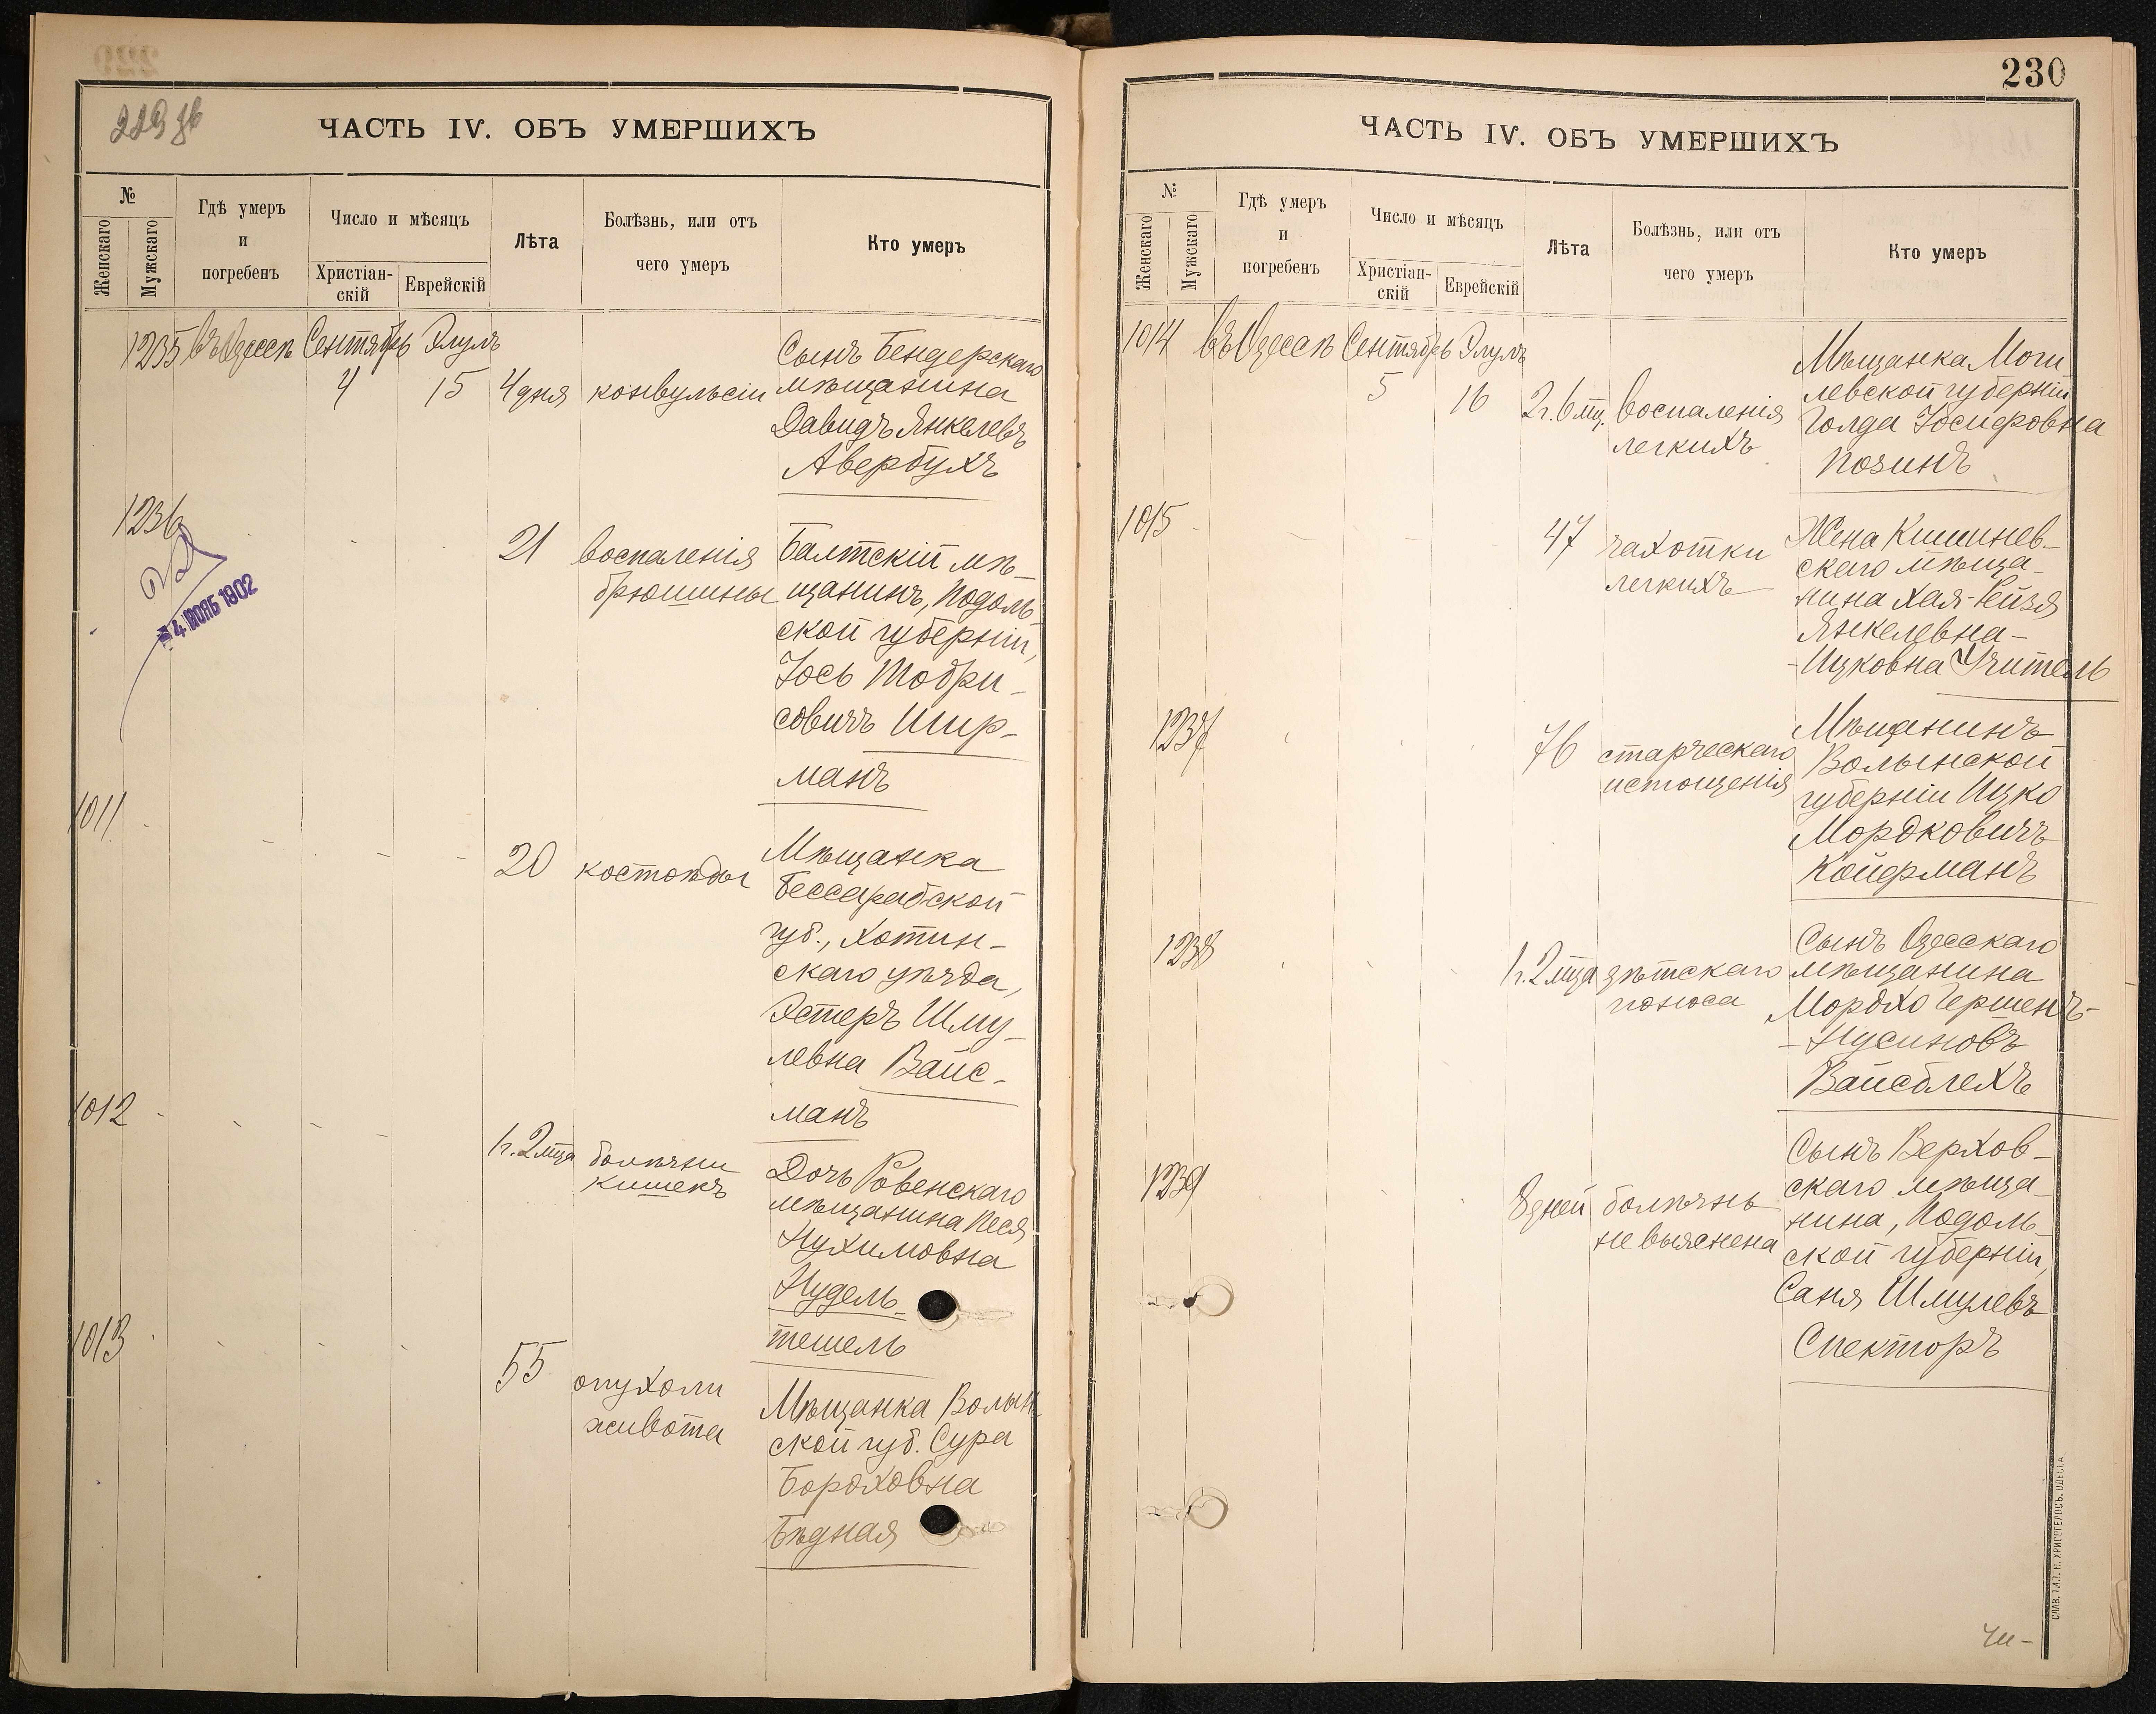 ЧАСТЬ IV. ОБЪ УМЕРШИХЪ
№
Женскаго
Мужскаго
Гдѣ умеръ
и
погребенъ
Число и мѣсяцъ
Христіан-
скій
Еврейскій
Лѣта
Болѣзнь, или отъ
чего умеръ
Кто умеръ
1235 въ Одессѣ Сентябрь Элулъ
4 15 4 дня конвульсіи
Сынъ Бендерскаго
мѣщанина
Давидъ Янкелевъ
Авербухъ
1236
4 НОЯБ 1902
21 воспаленія
брюшины
Балтскій мѣ-
щанинъ, Подоль-
ской губерніи,
Іось Мобри-
совичъ Шир-
манъ
1011
20 костоѣды
Мѣщанка
Бессарабской
губ., Хотин-
скаго уѣзда,
Эстеръ Шму-
левна Вайс-
манъ
1012
1 г. 2 мца болѣзни
кишекъ
Дочь Ровенскаго
мѣщанина Песя
Нухимовна
Нудель-
тешель
1013
55 опухоли
живота
Мѣщанка Волын-
ской губ. Сура
Бороховна
Бѣдная
230
ЧАСТЬ IV. ОБЪ УМЕРШИХЪ
№
Женскаго
Мужскаго
Гдѣ умеръ
и
погребенъ
Число и мѣсяцъ
Христіан-
скій
Еврейскій
Лѣта
Болѣзнь, или отъ
чего умеръ
Кто умеръ
1014 въ Одессѣ Сентябрь Элулъ
5 16 2 г. 6 мц. воспаленія
легкихъ
Мѣщанка Моги
левской губерніи
Голда Іосифовна
Позинъ
1015
47 чахотки
легкихъ
Жена Кишинев-
скаго мѣща-
нина Хая-Рейзя
Янкелевна-
-Ицковна Учитель
1237
76 старческаго
истощенія
Мѣщанинъ
Волынской
губерніи Ицко
Мордковичъ
Койфманъ
1238
1 г. 2 мца дѣтскаго
поноса
Сынъ Одесскаго
мѣщанина
Мордхо Гершенъ-
-Нусиновъ
Вайсблехъ
1239
8 дней болѣзнь
не выяснена
Сынъ Верхов-
скаго мѣща-
нина, Подоль
ской губерніи,
Саня Шмулевъ
Спекторъ
СЛАВ. ТИП. Н. ХРИСОГЕЛОСЪ, ОДЕССА